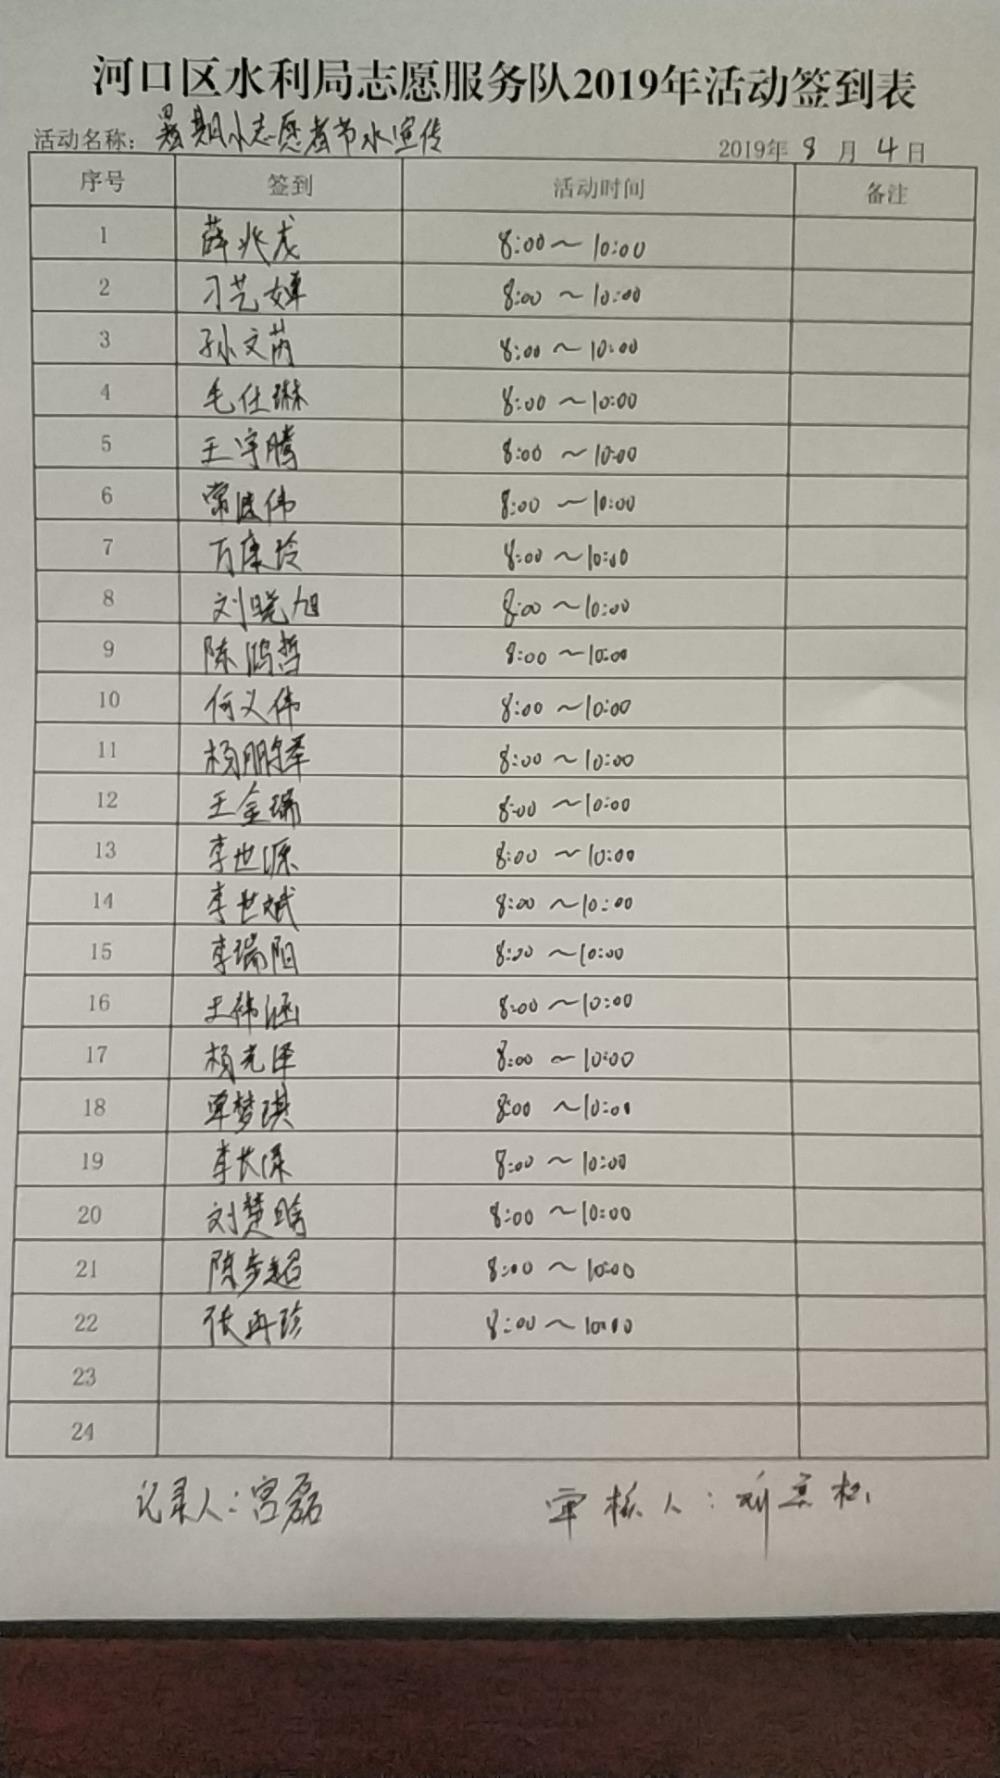 河口区水利局志愿服务队2019年活动签到表
活动名称：暑期小志愿者节水宣传 2019年 8 月 4 日
序号 签到 活动时间 备注
1 薛兆成 8:00～10:00
2 刁艺婵 8:00～10:00
3 孙文芮 8:00～10:00
4 毛仕琳 8:00～10:00
5 王宇腾 8:00～10:00
6 常浚伟 8:00～10:00
7 万康玲 8:00～10:00
8 刘晓旭 8:00～10:00
9 陈鸿哲 8:00～10:00
10 何义伟 8:00～10:00
11 杨鹏泽 8:00～10:00
12 王金瑞 8:00～10:00
13 李世源 8:00～10:00
14 李世斌 8:00～10:00
15 李瑞阳 8:00～10:00
16 王伟涵 8:00～10:00
17 杨光泽 8:00～10:00
18 覃梦琪 8:00～10:00
19 李长泽 8:00～10:00
20 刘楚晗 8:00～10:00
21 陈步超 8:00～10:00
22 张再珍 8:00～10:00
23
24
记录人：宫磊 审核人：